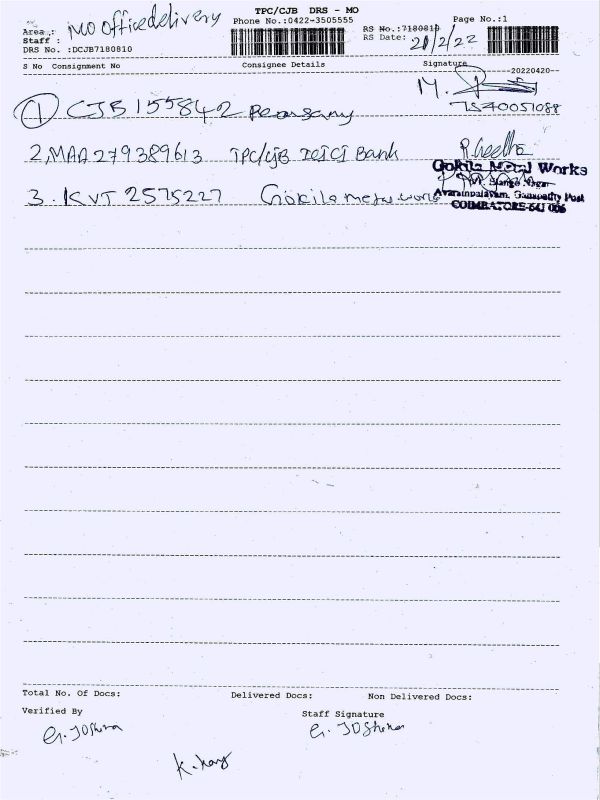 TPC/CJB DRS - MO
Phone No.:0422-3505555
Page No.:1
Area : MO office delivery
Staff :
DRS No. :DCJB7180810
RS No.:7180810
RS Date: 21/2/22
S No Consignment No Consignee Details Signature
20220420
1 CJB 155842
7540051088
2, MAA 279389613 TPC/CJB ICICI Bank R. Geetha
3. KVT 2575227 Gokila metal works
Gokila Metal Works
Avarampalayam, Ganapathy Post
COIMBATORE-641 006
Total No. Of Docs: Delivered Docs: Non Delivered Docs:
Verified By Staff Signature